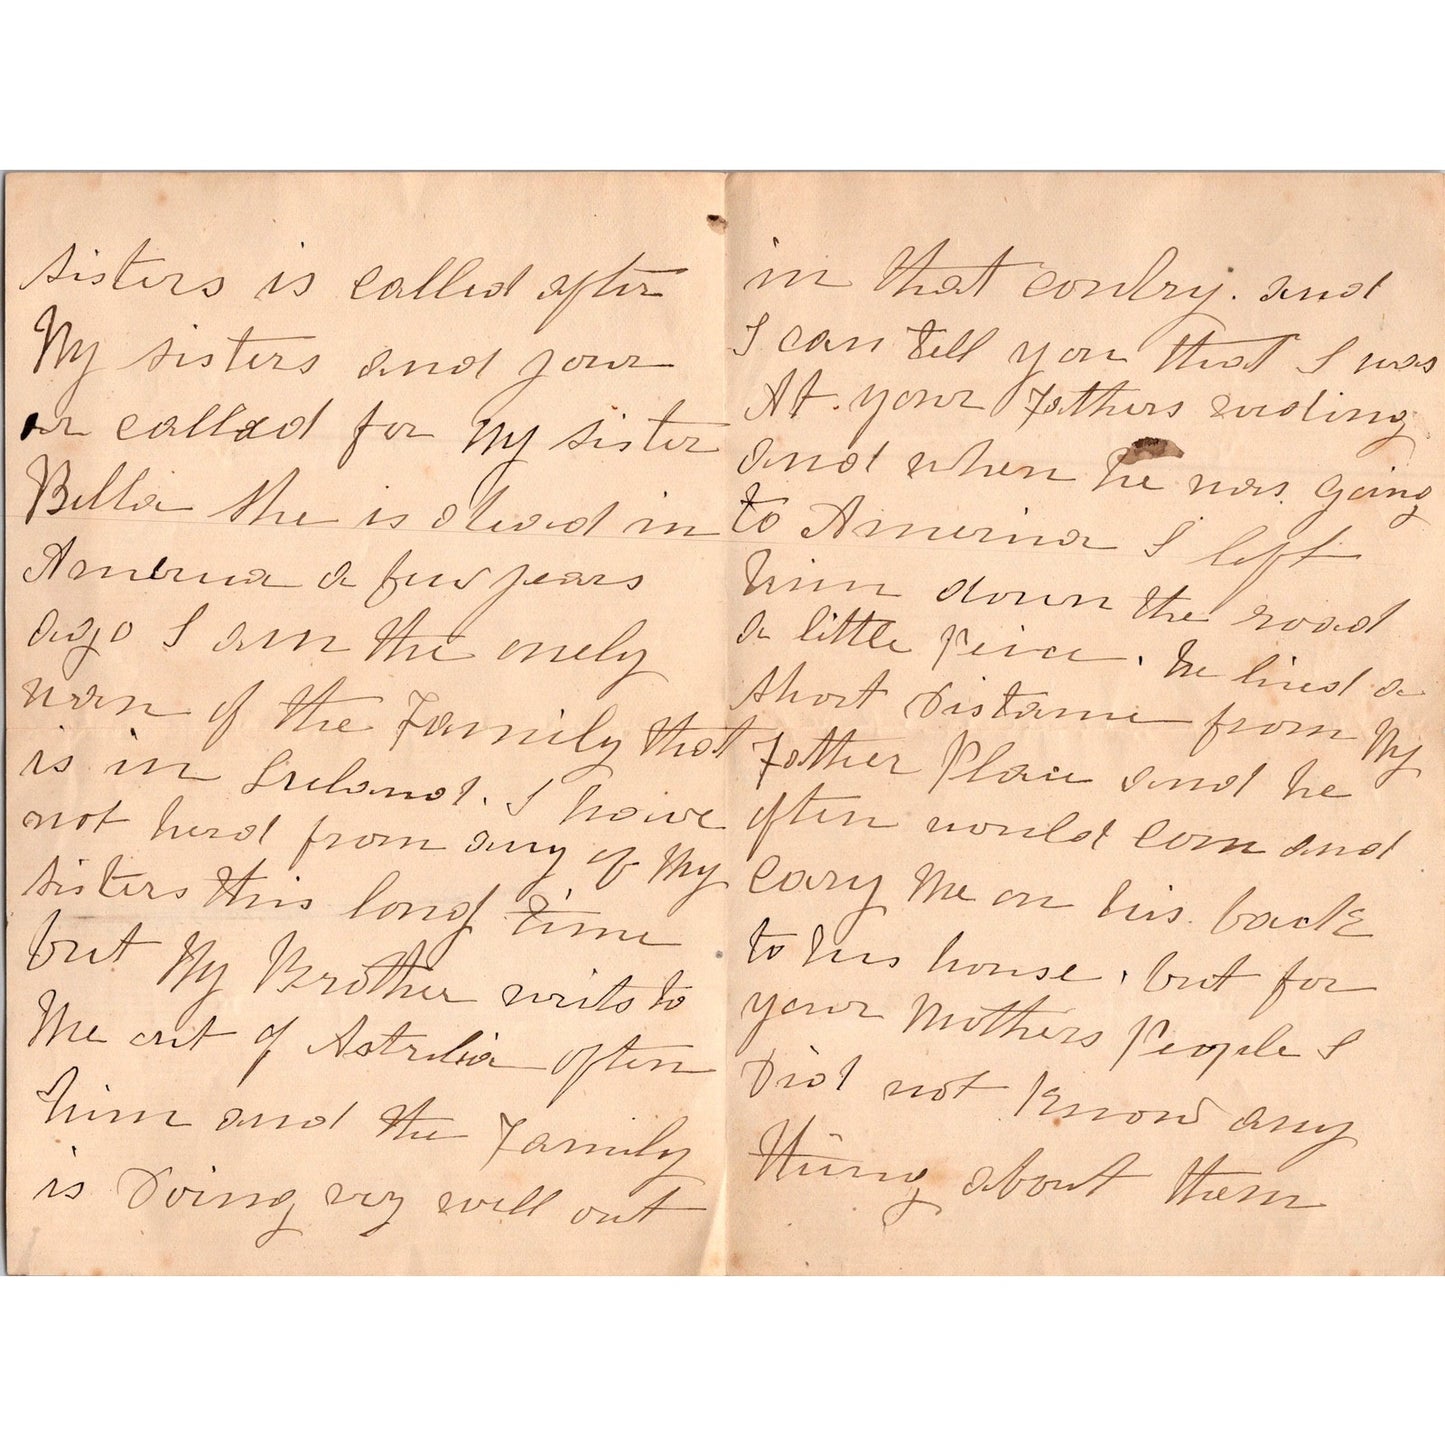 sisters is called after
My sisters and your
or called for My sister
Bella she is dead in
America a few years
ago I am the onely
wan of the Family that
is in Ireland. I haive
not herd from any of My
sisters this long time
but My Brother writs to
Me out of Astrilia often
him and the Family
is Doing very well out
in that contry. and
I can tell you that I was
At. your Fathers weding
and when he was going
to America I left
him down the road
a little Peice. he lived a
short Distance from My
Father Place and he
often would com and
cary Me on his back
to his house. but for
your Mothers People I
Did not Know any
thing about them